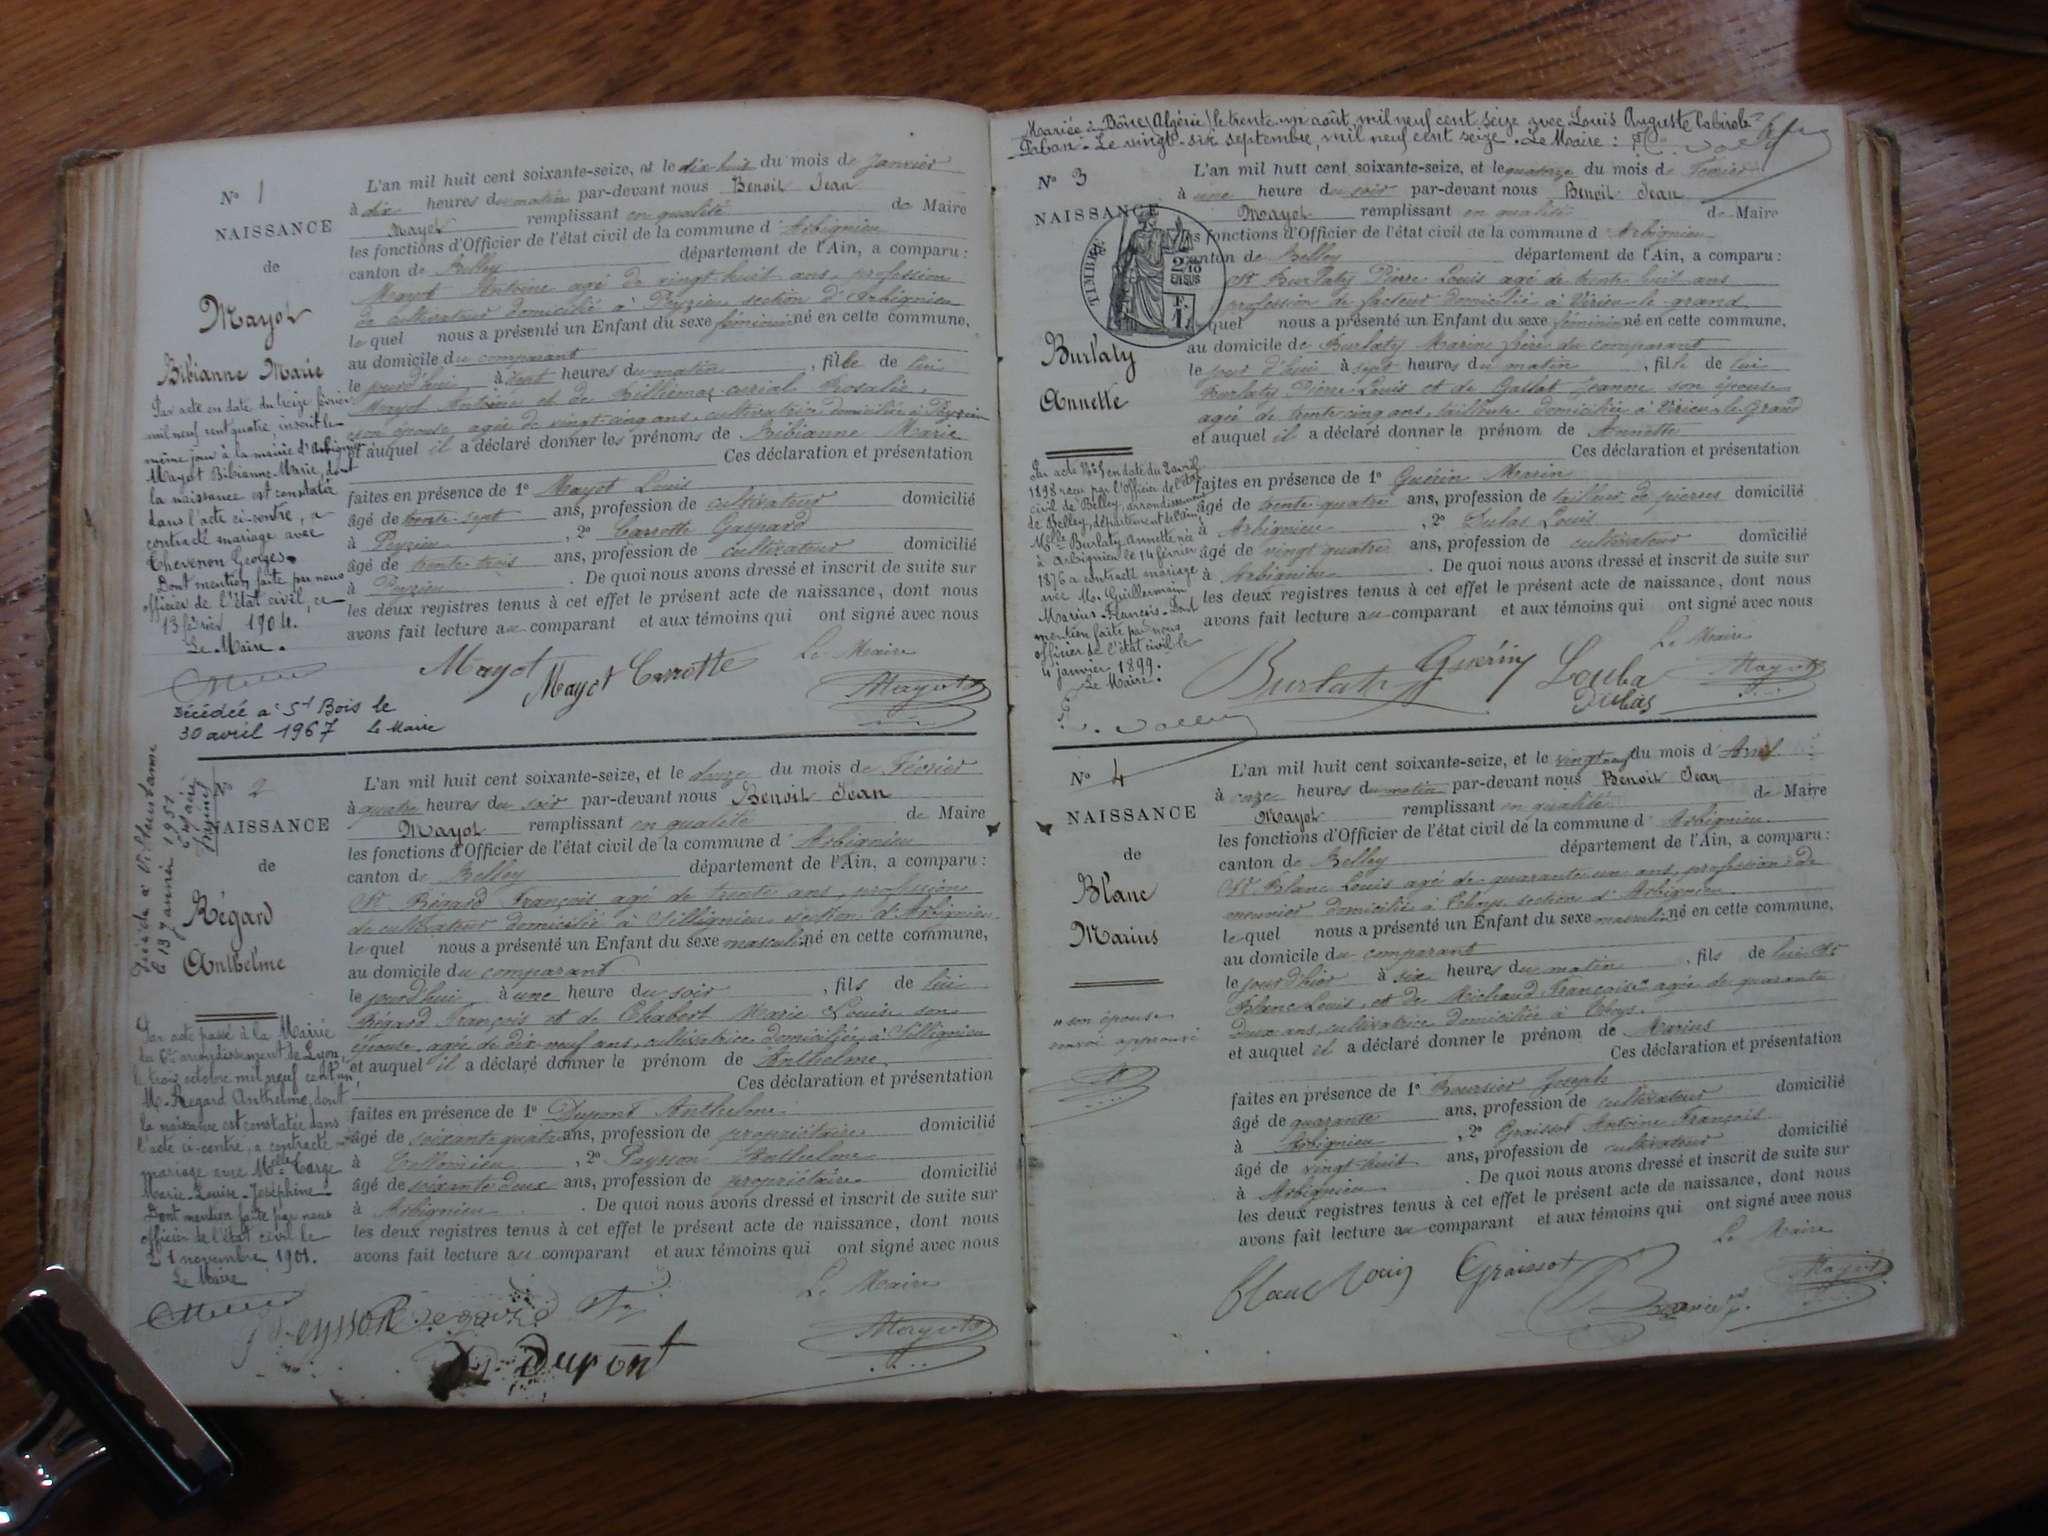 N° 1
NAISSANCE
de
Mayot
Bibianne Marie
Par acte en date du treize février
mil neuf cent quatre inscrit le
même jour à la mairie d'Arbignieu
Mayot Bibianne Marie, dont
la naissance est constatée
dans l'acte ci-contre, a
contracté mariage avec
Thevenon Georges.
Dont mention faite par nous
officier de l'état civil, ce
13 février 1904.
Le Maire.
Décédée à St Bois le
30 avril 1967 le Maire
L'an mil huit cent soixante-seize, et le dix huit du mois de Janvier
à dix heures du matin par-devant nous Benoit Jean
Mayot remplissant en qualité de Maire
les fonctions d'Officier de l'état civil de la commune d'Arbignieu
canton de Belley département de l'Ain, a comparu:
Mayot Antoine agé de vingt huit ans, profession
de cultivateur domicilié à Peyzieu section d'Arbignieu
le quel nous a présenté un Enfant du sexe féminin né en cette commune,
au domicile du comparant
le jourd'hui, à heures du matin, fille de lui
Mayot Antoine et de Rosalie,
son épouse agée de vingt-cinq ans, cultivatrice domiciliée à Peyzieu
et auquel il a déclaré donner les prénoms de Bibianne Marie
Ces déclaration et présentation
faites en présence de 1° Mayot Louis
âgé de trente-sept ans, profession de cultivateur domicilié
à Peyzieu, 2° Carrotte Gaspard
âgé de trente trois ans, profession de cultivateur domicilié
à Peyzieu. De quoi nous avons dressé et inscrit de suite sur
les deux registres tenus à cet effet le présent acte de naissance, dont nous
avons fait lecture au comparant et aux témoins qui ont signé avec nous
Le Maire
Mayot Mayot Carrotte Mayot
N° 2
NAISSANCE
de
Régard
Anthelme
Décédé à Villeurbanne
le 13 janvier 1951
Par acte passé à la Mairie
du 6e arrondissement de Lyon,
le trois octobre mil neuf cent un,
M. Régard Anthelme, dont
la naissance est constatée dans
l'acte ci-contre, a contracté
mariage avec Melle
Marie-Louise-Joséphine
Dont mention faite par nous
officier de l'état civil le
novembre 1901.
Le Maire
L'an mil huit cent soixante-seize, et le douze du mois de Février
à quatre heures du soir par-devant nous Benoit Jean
Mayot remplissant en qualité de Maire
les fonctions d'Officier de l'état civil de la commune d'Arbignieu
canton de Belley département de l'Ain, a comparu:
Sr Régard François agé de trente ans, profession
de cultivateur domicilié à Sillignieu section d'Arbignieu
le quel nous a présenté un Enfant du sexe masculin né en cette commune,
au domicile du comparant
le jourd'hui, à une heure du soir, fils de lui
Régard François et de Chabert Marie Louise son
épouse, agée de dix neuf ans, cultivatrice domiciliée à Sillignieu
et auquel il a déclaré donner le prénom de Anthelme
Ces déclaration et présentation
faites en présence de 1° Dupont Anthelme
âgé de soixante quatre ans, profession de propriétaire domicilié
à, 2° Peysson Anthelme
âgé de soixante deux ans, profession de propriétaire domicilié
à Arbignieu. De quoi nous avons dressé et inscrit de suite sur
les deux registres tenus à cet effet le présent acte de naissance, dont nous
avons fait lecture au comparant et aux témoins qui ont signé avec nous
Le Maire
Peysson Regard Mayot
Dupont
Mariée à Bône (Algérie) le trente un août mil neuf cent seize avec Louis Auguste
Le vingt-six septembre mil neuf cent seize. Le Maire:
N° 3
NAISSANCE
TIMBRE
2/10
EN SUS
Burlaty
Annette
Par acte N° 5 en date du 2 avril
1898 reçu par l'Officier de l'état
civil de Belley, arrondissement
de Belley, département de l'Ain
Melle Burlaty Annette née
à Arbignieu le 14 février
1876 a contracté mariage
avec M. Guillermain
Marius-François. Dont
mention faite par nous
officier de l'état civil le
4 janvier 1899.
Le Maire.
L'an mil huit cent soixante-seize, et le quatorze du mois de Février
à une heure du soir par-devant nous Benoit Jean
Mayot remplissant en qualité de Maire
les fonctions d'Officier de l'état civil de la commune d'Arbignieu
canton de Belley département de l'Ain, a comparu:
Sr Burlaty Pierre Louis agé de trente huit ans
profession de facteur domicilié à Virieu le grand
le quel nous a présenté un Enfant du sexe féminin né en cette commune,
au domicile de Burlaty Marin frère du comparant
le jour d'hui à sept heures du matin, fille de lui
Burlaty Pierre Louis et de Gallet Jeanne son épouse
agée de trente cinq ans, tailleuse domiciliée à Virieu-le-Grand
et auquel il a déclaré donner le prénom de Annette
Ces déclaration et présentation
faites en présence de 1° Guérin Marin
âgé de trente quatre ans, profession de tailleur de pierres domicilié
à Arbignieu, 2° Dulas Louis
âgé de vingt quatre ans, profession de cultivateur domicilié
à Arbignieu. De quoi nous avons dressé et inscrit de suite sur
les deux registres tenus à cet effet le présent acte de naissance, dont nous
avons fait lecture au comparant et aux témoins qui ont signé avec nous
Le Maire
Burlaty Guérin Mayot
Dulas
N° 4
NAISSANCE
de
Blanc
Marius
" son épouse
renvoi approuvé
L'an mil huit cent soixante-seize, et le vingt neuf du mois d'Avril
à onze heures du matin par-devant nous Benoit Jean
Mayot remplissant en qualité de Maire
les fonctions d'Officier de l'état civil de la commune d'Arbignieu
canton de Belley département de l'Ain, a comparu:
Sr Blanc Louis agé de quarante un ans, profession de
meunier domicilié à Thoys section d'Arbignieu
le quel nous a présenté un Enfant du sexe masculin né en cette commune,
au domicile du comparant
le jour d'hier à six heures du matin, fils de lui Sr
Blanc Louis, et de Michaud Françoise " agée de quarante
deux ans, cultivatrice domiciliée à Thoys.
et auquel il a déclaré donner le prénom de Marius
Ces déclaration et présentation
faites en présence de 1° Boursier Joseph
âgé de quarante ans, profession de cultivateur domicilié
à Arbignieu, 2° Graissot Antoine François
âgé de vingt huit ans, profession de cultivateur domicilié
à Arbignieu. De quoi nous avons dressé et inscrit de suite sur
les deux registres tenus à cet effet le présent acte de naissance, dont nous
avons fait lecture au comparant et aux témoins qui ont signé avec nous
Le Maire
Blanc Louis Graissot Mayot